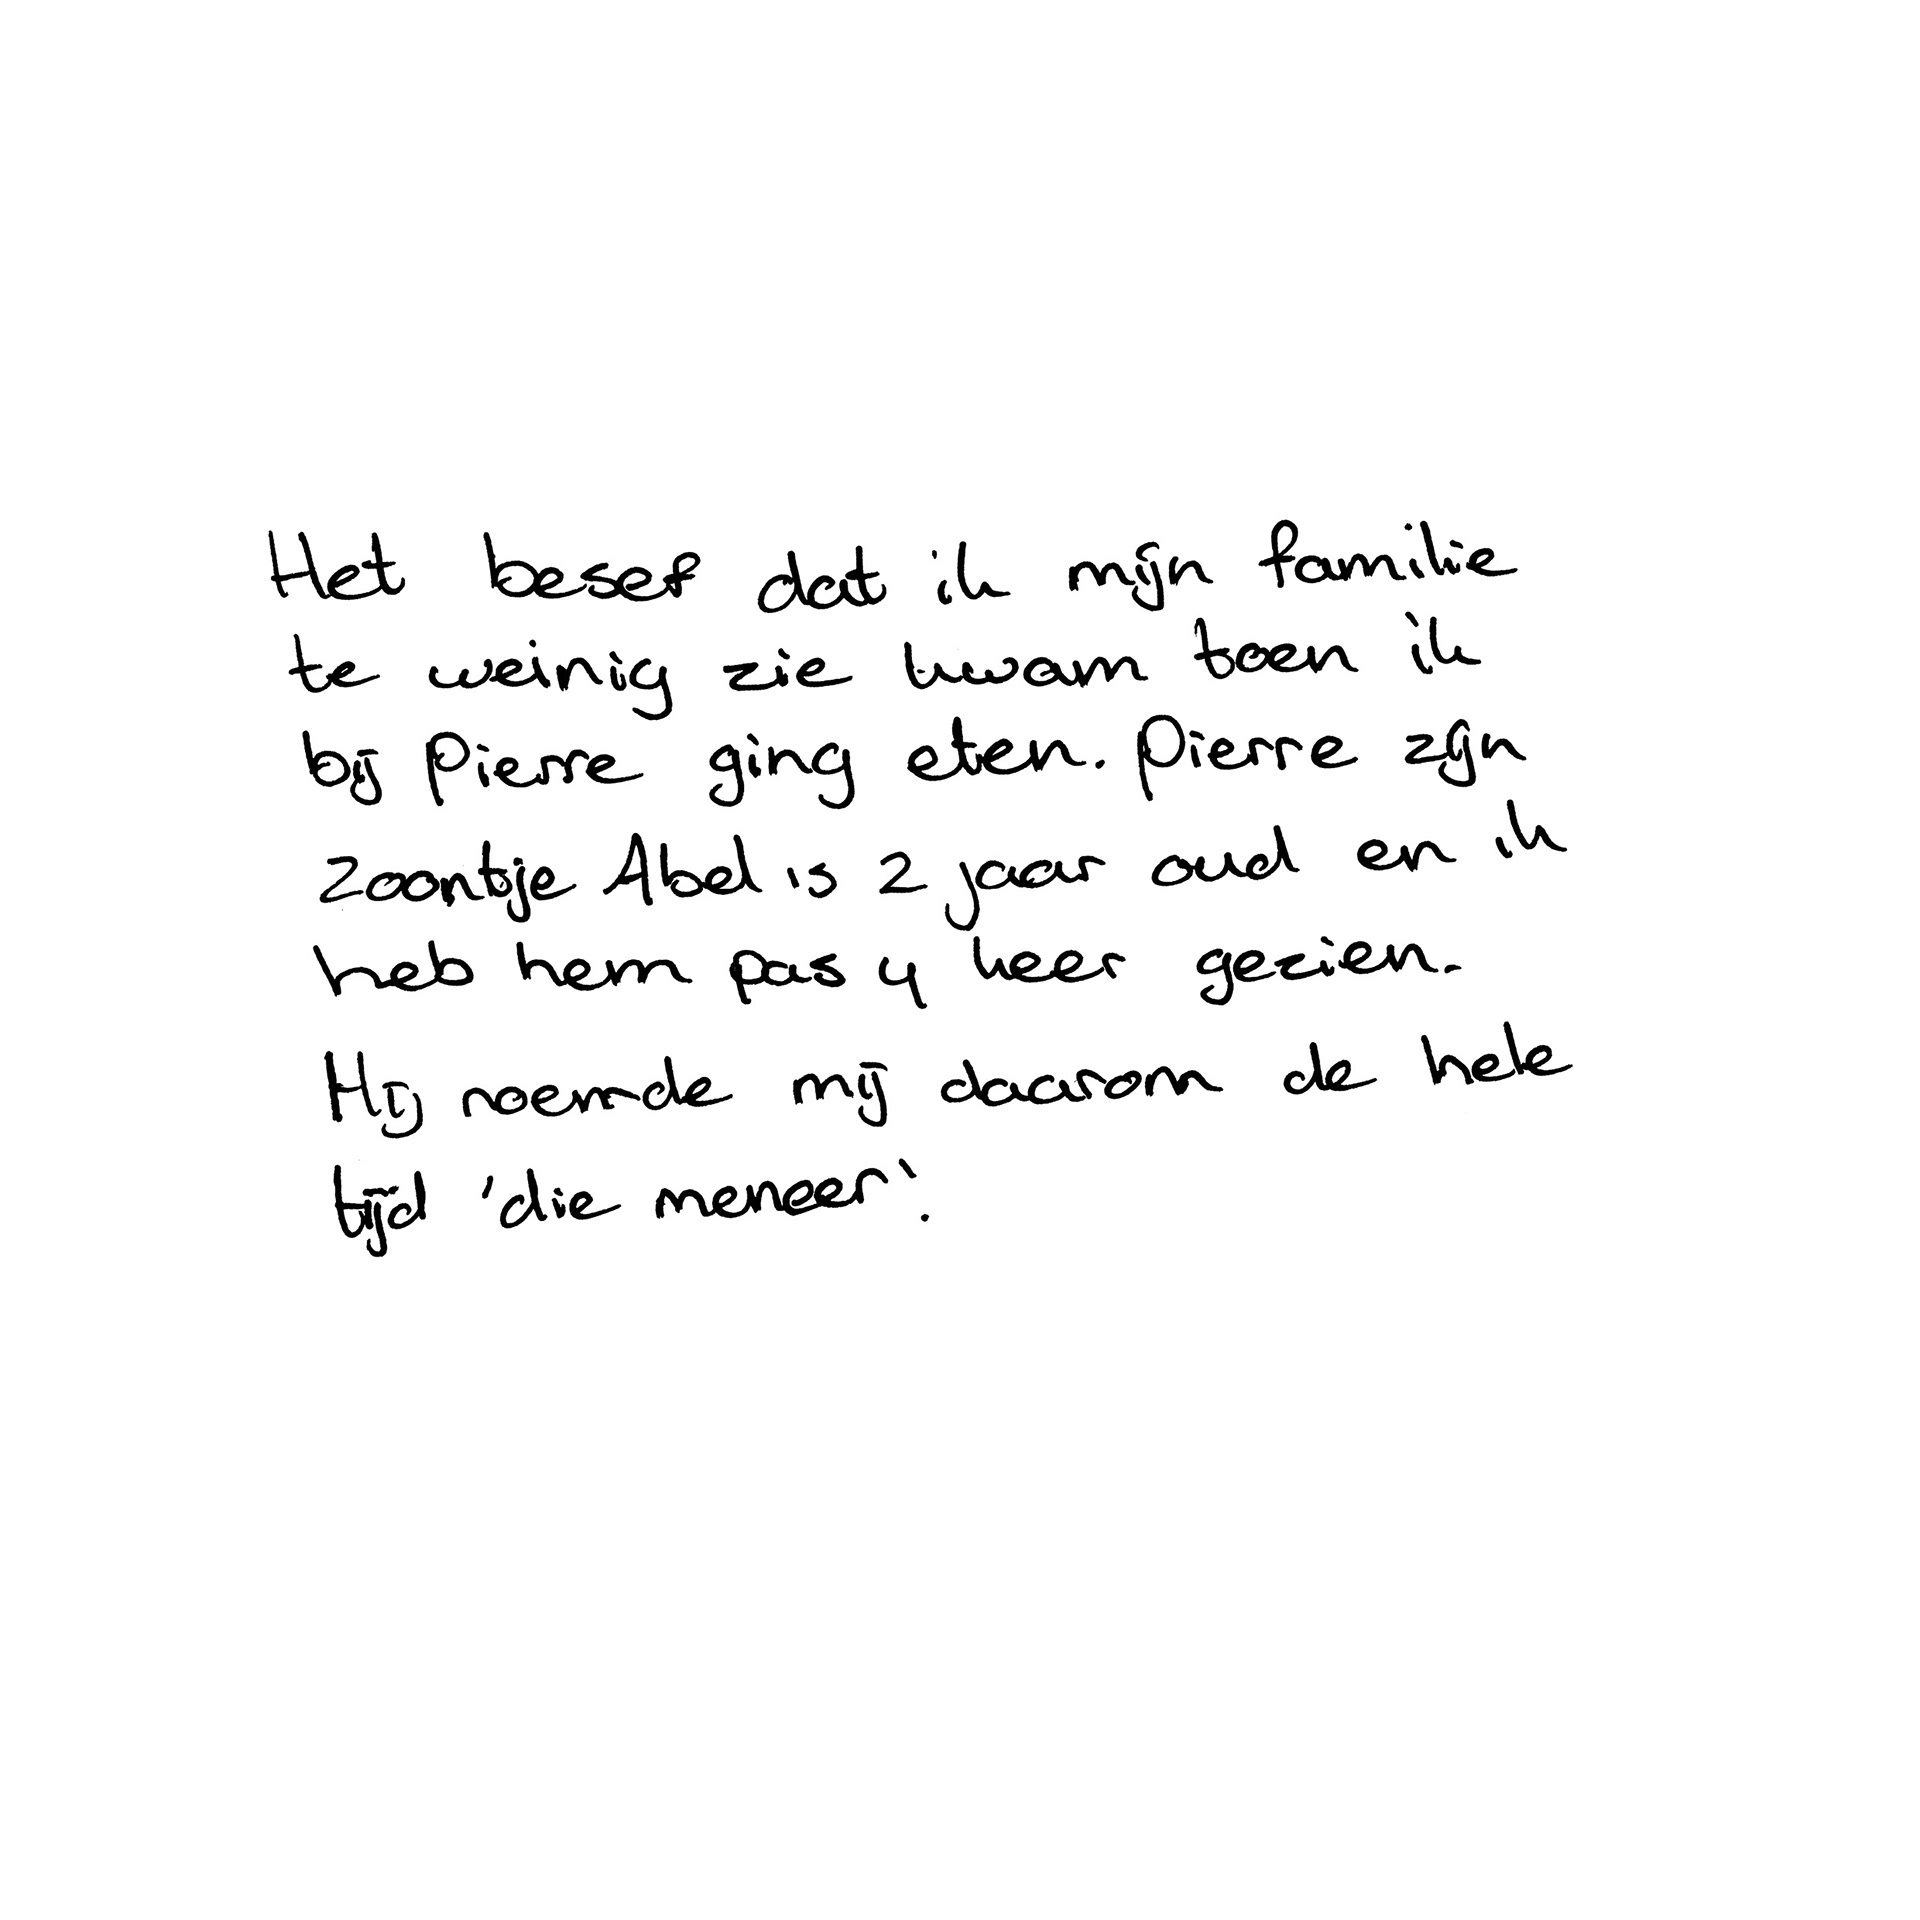 Het besef dat ik mijn familie
te weinig zie kwam toen ik
bij Pierre ging eten. Pierre zijn
zoontje Abel is 2 jaar oud en ik
heb hem pas 4 keer gezien.
Hij noemde mij daarom de hele
tijd 'die meneer'.